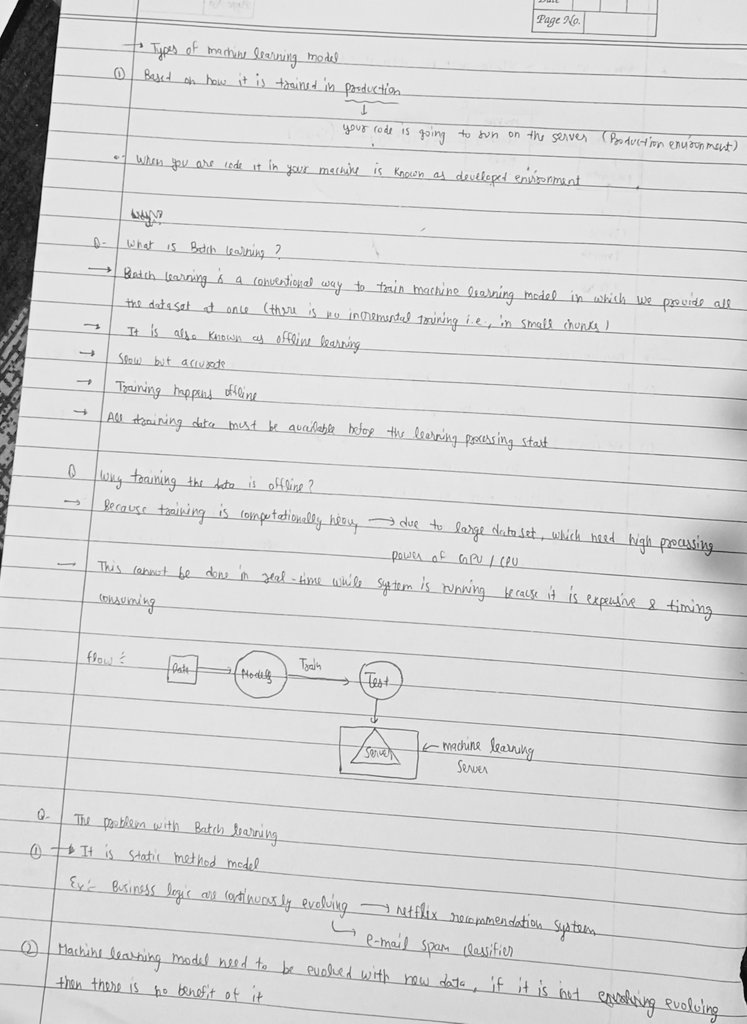 Page No.
→ Types of machine learning model
① Based on how it is trained in production
↓
your code is going to run on the server (Production environment)
• When you are code it in your machine is known as developed environment
Q- What is Batch learning ?
→ Batch learning is a conventional way to train machine learning model in which we provide all
the dataset at once (there is no incremental training i.e., in small chunks)
→ It is also known as offline learning
→ Slow but accurate
→ Training happens offline
→ All training data must be available before the learning processing start
Q Why training the data is offline ?
→ Because training is computationally heavy → due to large dataset, which need high processing
power of GPU / CPU
→ This cannot be done in real-time while system is running because it is expensive & timing
consuming
flow :-
Data → Models Train → Test
↓
Server ← machine learning
server
Q- The problem with Batch learning
① → It is static method model
Ex:- Business logic are continuously evolving → netflix recommendation system
↳ e-mail spam classifier
② Machine learning model need to be evolved with new data, if it is not evolving
then there is no benefit of it